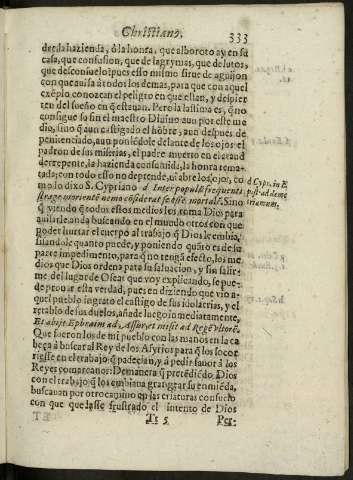 Christiano. 333
dre, la hazienda, ò la honra, que alboroto ay en su
casa, que confusion, que de lagrymas, que de lutos,
que desconsuelo! pues esso mismo sirue de aguijon
con que auisa à todos los demas, para que con aquel
exẽplo conozcan el peligro en que estan, y despier
ten del sueño en q̃ estauan. Pero la lastima es, q̃ no
consigue su fin el maestro Diuino aun por este me
dio, sino q̃ aun castigado el hõbre, aun despues de
penitenciado, aun poniẽdole delante de los ojos el
padron de sus miserias, el padre muerto
derrepente, la hazienda consumida, la honra roma
tada; con todo esso no deprende, ni abre los ojos, co
mo lo dixo S. Cypriano d Inter populũ frequenti
strage morientẽ nemo cõsiderat se esse mortalẽ. Sino
q̃ viendo q̃ todos estos medios los toma Dios para
quitarle, anda buscando en el mundo otros con que
poder hurtar el cuerpo al trabajo q̃ Dios le embia,
filandole quanto puede, y poniendo quãto es de su
parte impedimento, para q̃ no tengã efecto, los me
dios que Dios ordena para su saluacion, y sin salir
me del lugar de Oseas que voy explicando, se pue-
de prouar esta verdad, pues en diziendo que vio a-
quel pueblo ingrato el castigo de sus idolatrias, y el
retablo de sus duelos, añade luego inmediatamente,
Et abijt Ephraim ad Assur, et misit ad Regẽ vltorẽ.
Que fueron los de mi pueblo con las manos en la ca
beça à buscar al Rey de los Asyrios para q̃ los socor
riesse en el trabajo q̃ padecian, y à pedir fauor à los
Reyes comarcanos: Demanera q̃ pretẽdiẽdo Dios
con el trabajo q̃ los embiaua grangear su enmiẽda,
buscauan por otro camino en las criaturas consuelo
con que quedasse frustrado el intento de Dios
Tt 5 Per-
d Cypr. in E
pist. ad deme
trianum.